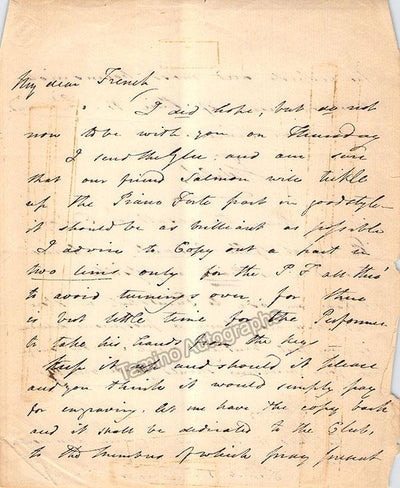 My dear French
I did hope, but do not
now to be with you on Thursday
I send the Glee and am sure
that our friend Salmon will tickle
up the Piano Forte part in good style
it should be as brilliant as possible
I advise to Copy out a part in
two lines only for the P F all thro'
to avoid turnings over, for there
is but little time for the Performer
to take his hands from the keys
Keep it and should it please
and you think it would simply pay
for engraving. let me have the copy back
and it shall be dedicated to the Club,
to the members of which pray present
Tamino Autographs